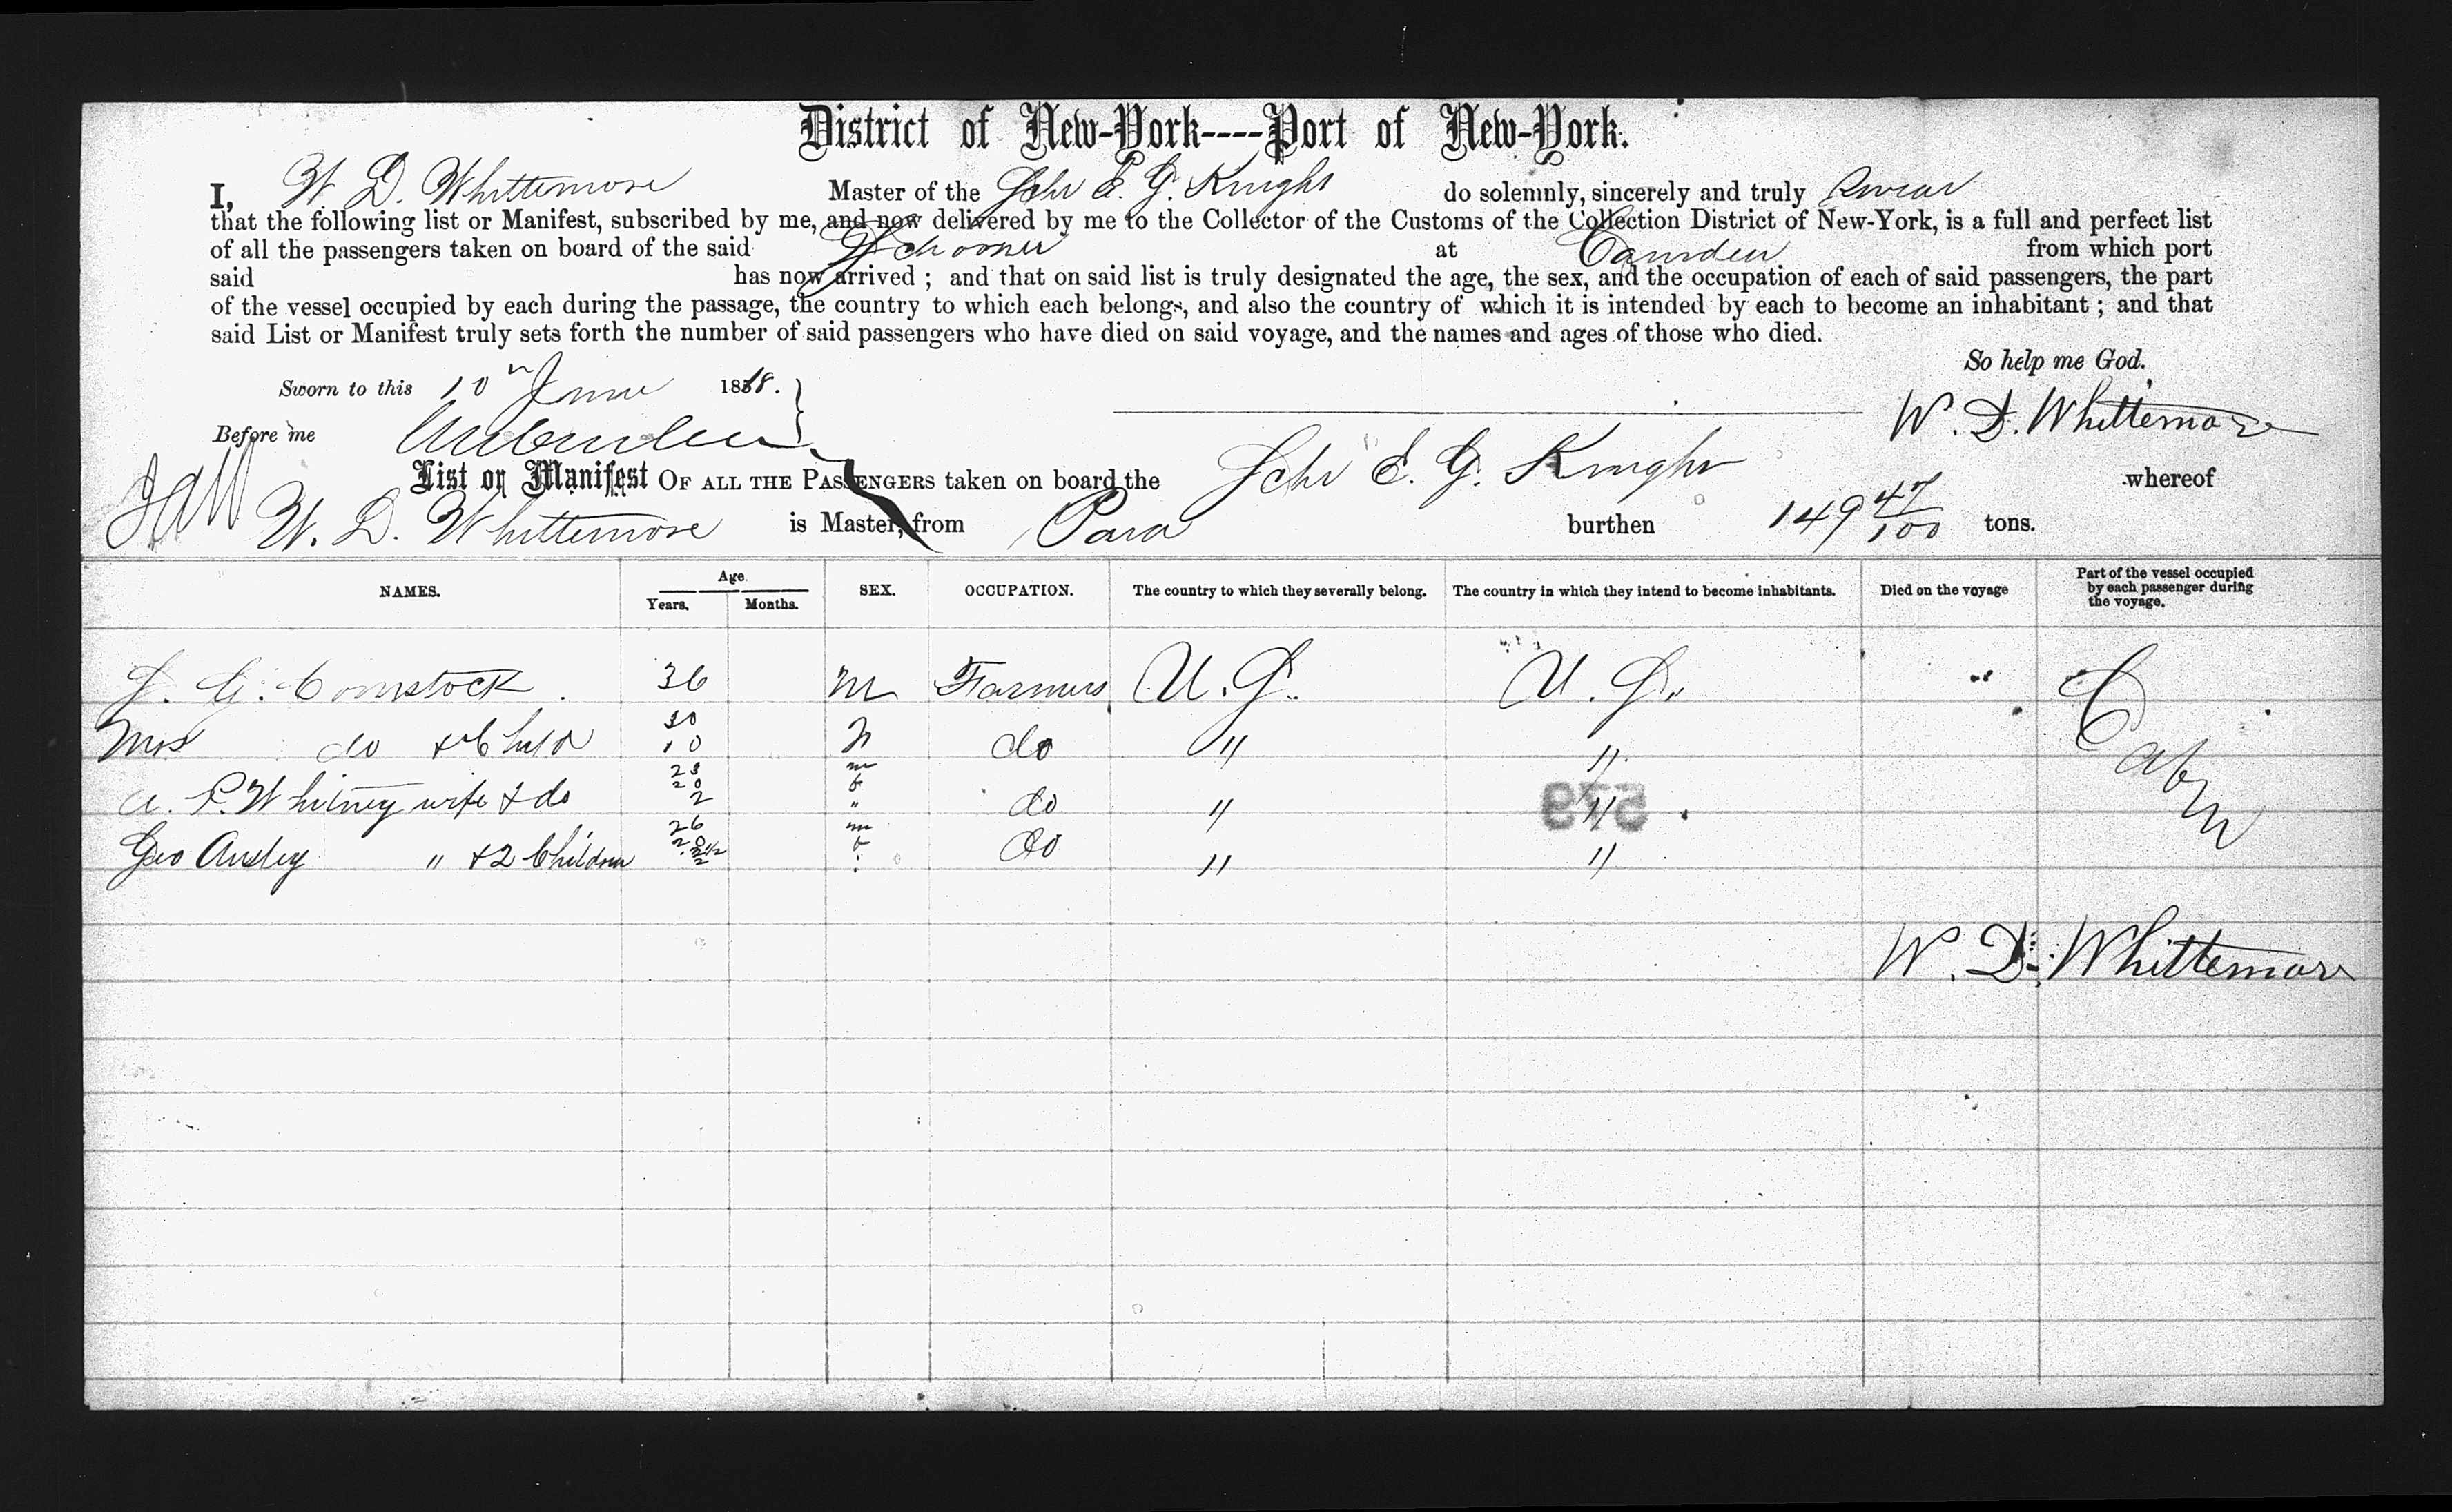 District of New-York----Port of New-York.
I, W. D. Whittemore Master of the Schr E. G. Knight do solemnly, sincerely and truly swear
that the following list or Manifest, subscribed by me, and now delivered by me to the Collector of the Customs of the Collection District of New-York, is a full and perfect list
of all the passengers taken on board of the said Schooner at Camden from which port
said has now arrived ; and that on said list is truly designated the age, the sex, and the occupation of each of said passengers, the part
of the vessel occupied by each during the passage, the country to which each belongs, and also the country of which it is intended by each to become an inhabitant ; and that
said List or Manifest truly sets forth the number of said passengers who have died on said voyage, and the names and ages of those who died.
So help me God.
Sworn to this 10 June 18
Before me W. D. Whittemore
List or Manifest OF ALL THE PASSENGERS taken on board the Schr E. G. Knight whereof
W. D. Whittemore is Master, from Para burthen 149 47/100 tons.
NAMES. Age. Years. Months. SEX. OCCUPATION. The country to which they severally belong. The country in which they intend to become inhabitants. Died on the voyage Part of the vessel occupied by each passenger during the voyage.
G. Comstock 36 m Farmers U. S. U. S. " Cabin
Mrs do & Child 30 10 do " "
A. P. Whitney wife & do 28 20 2 m f " do " "
579
Geo Ansley " & 2 Children 26 m f do " "
W. D. Whittemore